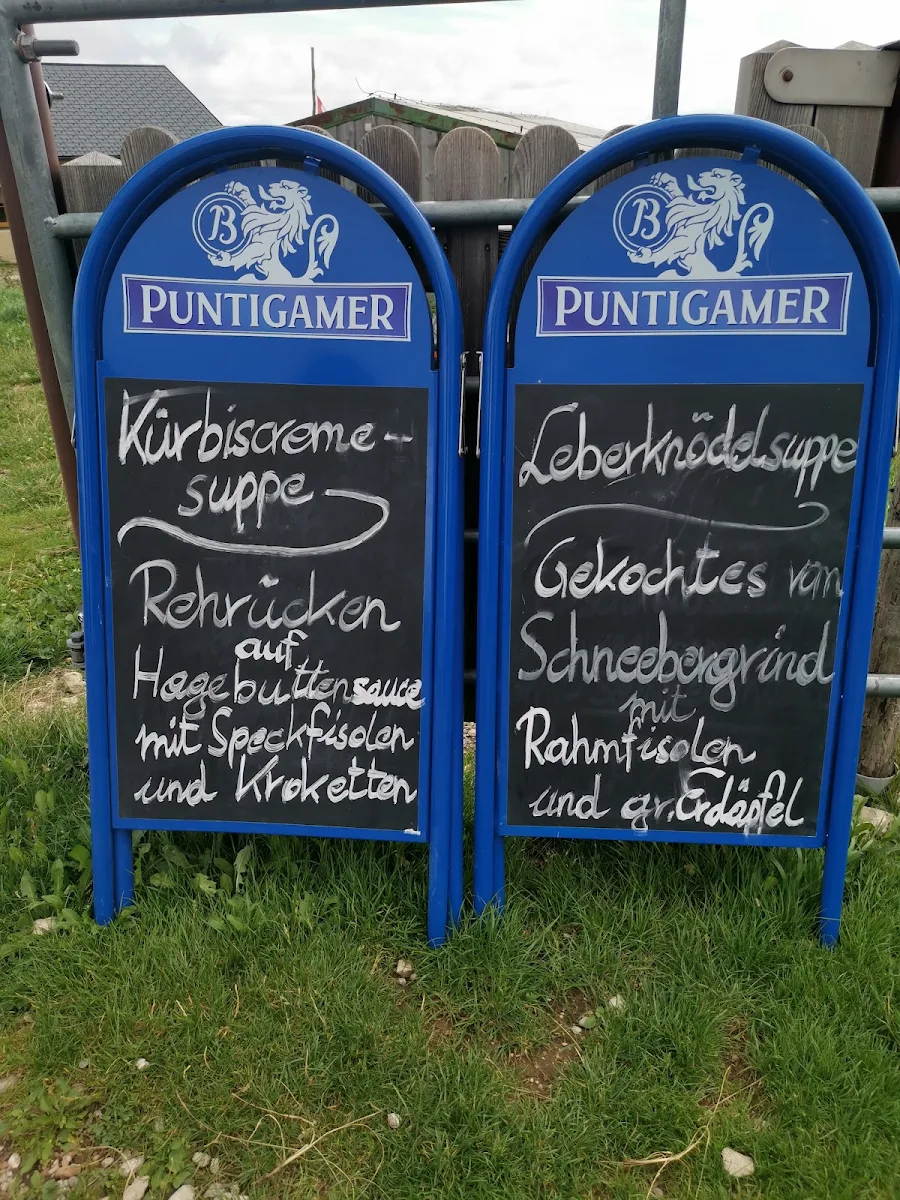 B
PUNTIGAMER
Kürbiscreme-
suppe
Rehrücken
auf
Hagebuttensauce
mit Speckfisolen
und Kroketten
B
PUNTIGAMER
Leberknödelsuppe
Gekochtes vom
Schneebergrind
mit
Rahmfisolen
und gr. Erdäpfel